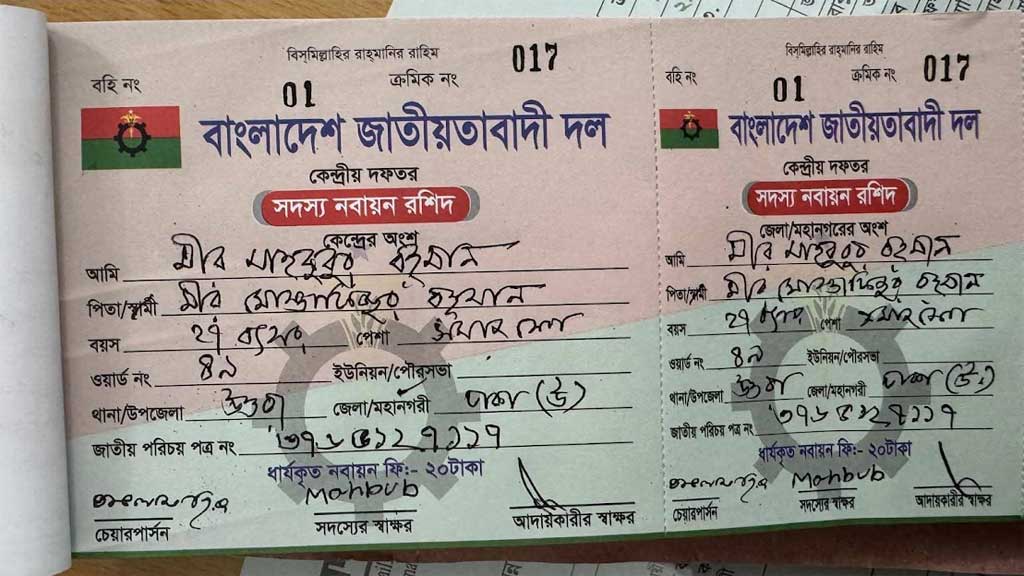 বিস্‌মিল্লাহির রাহ্‌মানির রাহিম
বহি নং 01 ক্রমিক নং 017
বাংলাদেশ জাতীয়তাবাদী দল
কেন্দ্রীয় দফতর
সদস্য নবায়ন রশিদ
কেন্দ্রের অংশ
আমি মীর মাহবুবুর রহমান
পিতা/স্বামী মীর রহমান
বয়স ২৭ পেশা
ওয়ার্ড নং ৪৯ ইউনিয়ন/পৌরসভা
থানা/উপজেলা জেলা/মহানগরী ঢাকা (উ)
জাতীয় পরিচয় পত্র নং
ধার্যকৃত নবায়ন ফি:- ২০টাকা
Mahbub
চেয়ারপার্সন সদস্যের স্বাক্ষর আদায়কারীর স্বাক্ষর
বিস্‌মিল্লাহির রাহ্‌মানির রাহিম
বহি নং 01 ক্রমিক নং 017
বাংলাদেশ জাতীয়তাবাদী দল
কেন্দ্রীয় দফতর
সদস্য নবায়ন রশিদ
জেলা/মহানগরের অংশ
আমি মীর মাহবুবুর রহমান
পিতা/স্বামী মীর রহমান
বয়স ২৭ পেশা
ওয়ার্ড নং ৪৯ ইউনিয়ন/পৌরসভা
থানা/উপজেলা জেলা/মহানগরী ঢাকা (উ)
জাতীয় পরিচয় পত্র নং
ধার্যকৃত নবায়ন ফি:- ২০টাকা
Mahbub
চেয়ারপার্সন সদস্যের স্বাক্ষর আদায়কারীর স্বাক্ষর